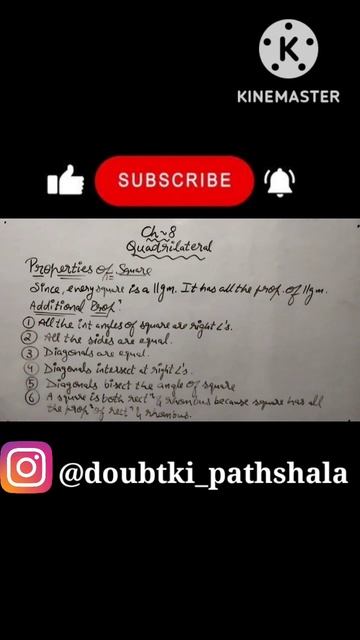 K
KINEMASTER
SUBSCRIBE
Ch~8
Quadrilateral
Properties of Square
Since, every square is a ||gm. It has all the prop. of ||gm.
Additional Prop!
① All the int angles of square are right ∠'s.
② All the sides are equal.
③ Diagonals are equal.
④ Diagonals intersect at right ∠'s.
⑤ Diagonals bisect the angle of square
⑥ A squire is both rect & rhombus because square has all
the prop of rect & rhombus.
@doubtki_pathshala